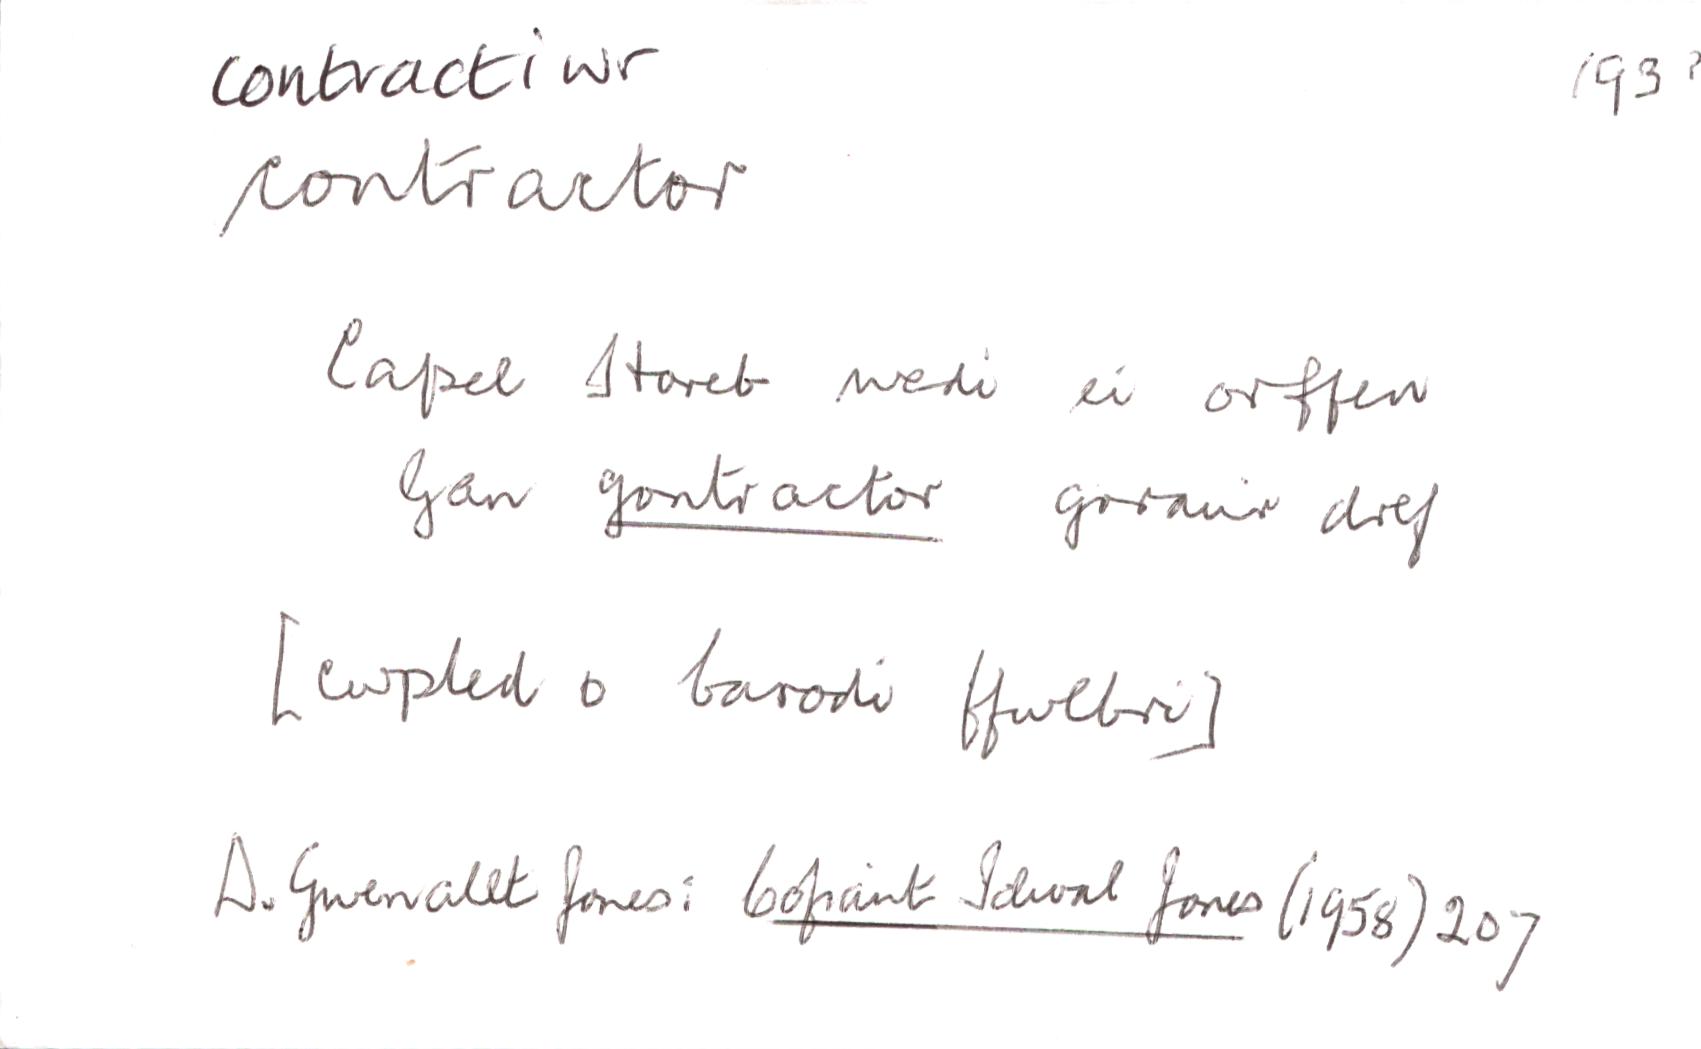 contractiwr 193?
contractor
Capel Horeb wedi ei orffen
Gan gontractor gorau'r dref
[cwpled o barodi ffwlbri]
D. Gwenallt Jones: Cofiant Idwal Jones (1958) 207